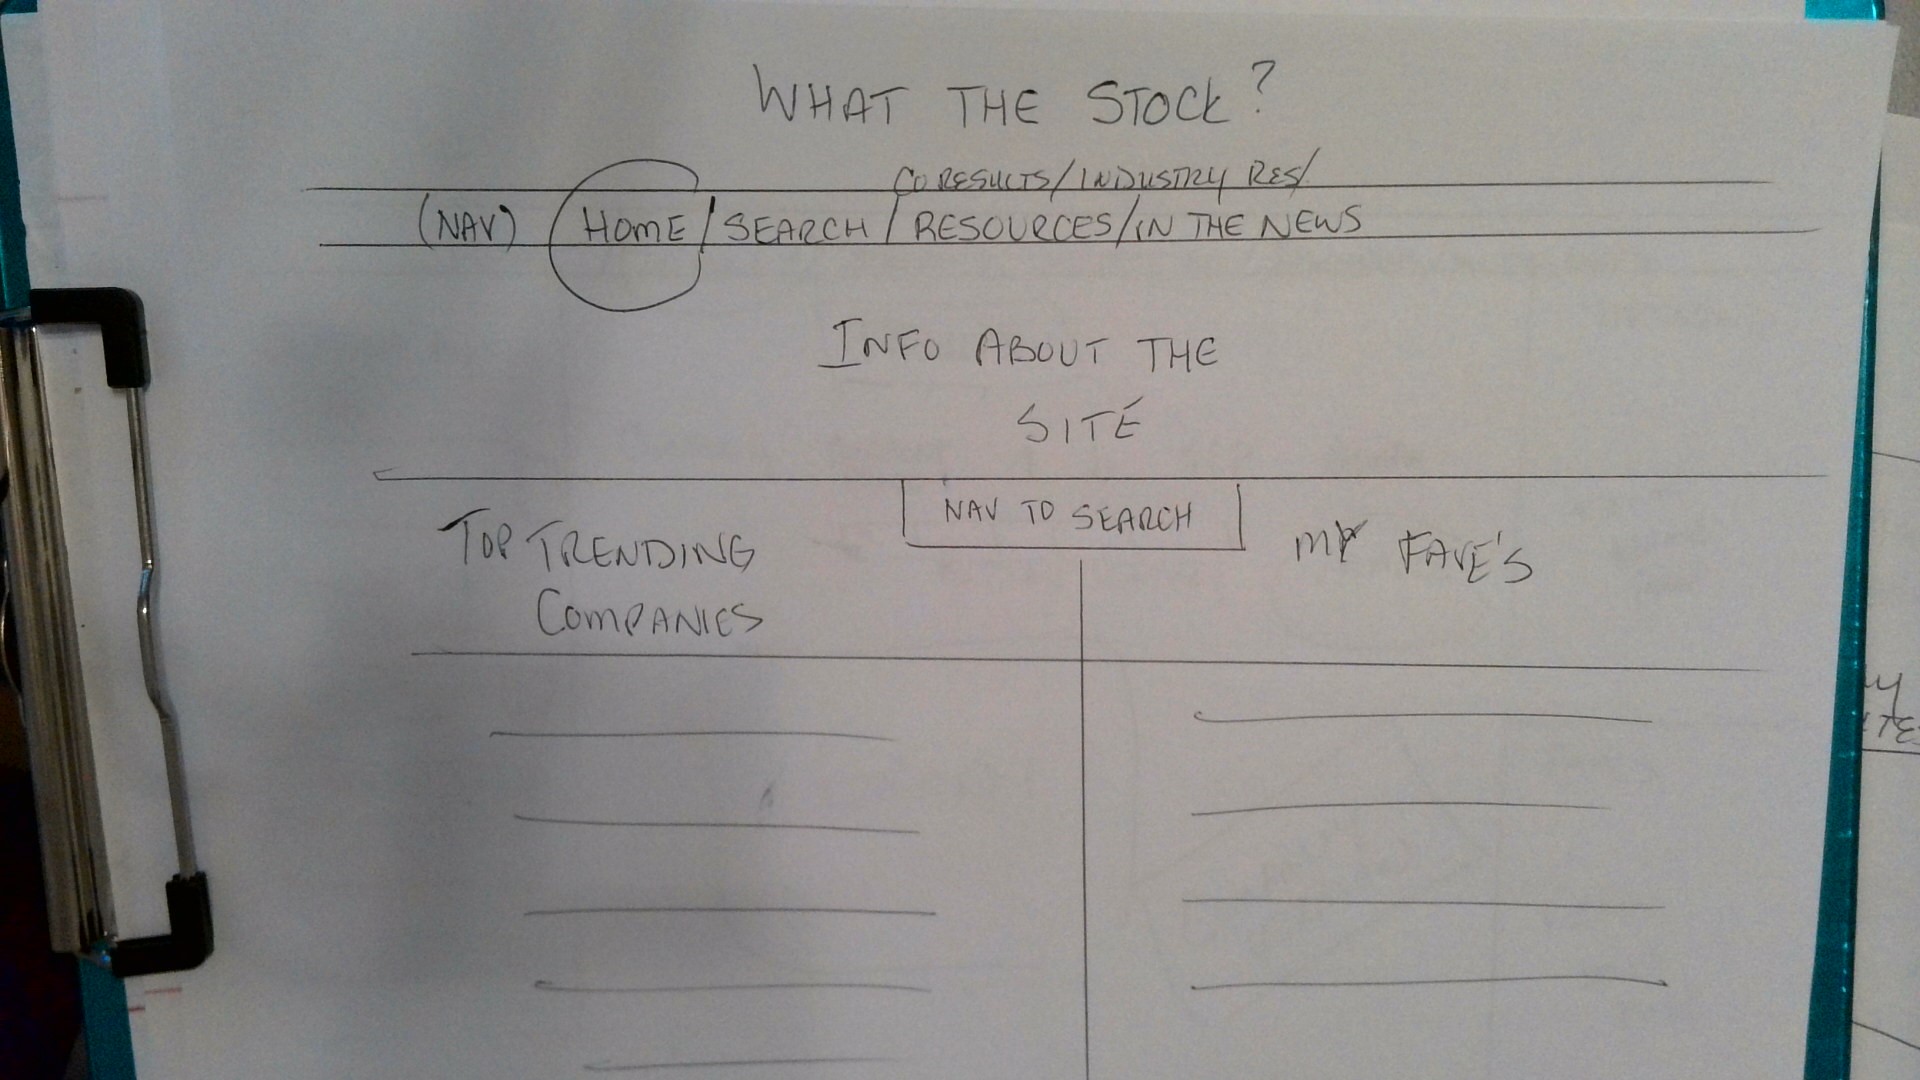 WHAT THE STOCK?
CO RESULTS/INDUSTRY RES/
(NAV) HOME/SEARCH/RESOURCES/IN THE NEWS
INFO ABOUT THE
SITE
NAV TO SEARCH
TOP TRENDING
COMPANIES
MY FAVE'S